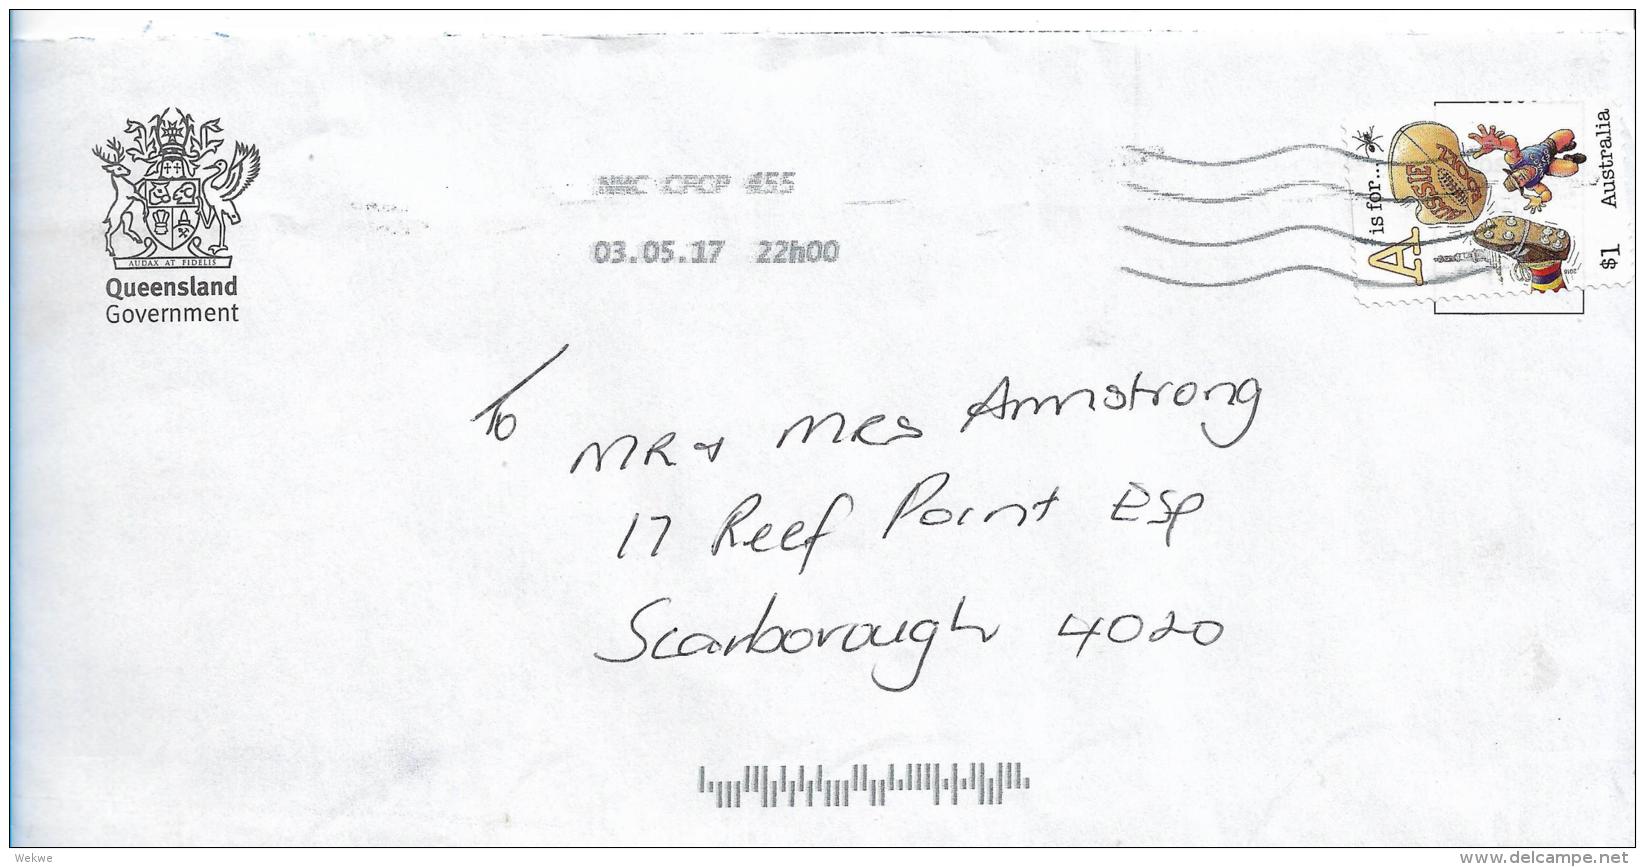 AUDAX AT FIDELIS
Queensland
Government
NMC CFCP 455
03.05.17 22h00
A is for...
AUSSIE
$1 Australia
To
MR & MRS Armstrong
17 Reef Point Esp
Scarborough 4020
Wekwe
www.delcampe.net